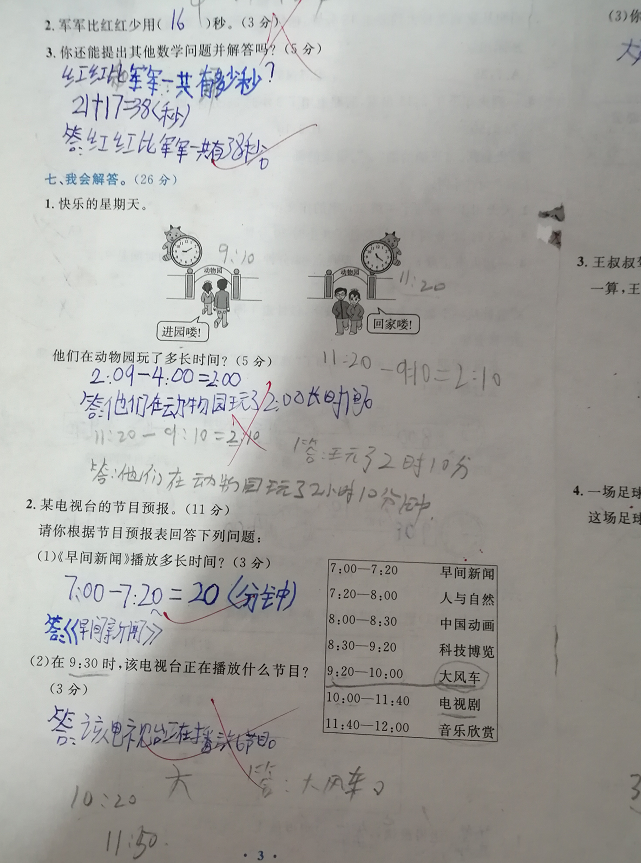 2.军军比红红少用( 16 )秒。(3分)
3.你还能提出其他数学问题并解答吗?(5分)
红红比军军一共有多少秒?
21+17=38(秒)
答:红红比军军一共有38秒。
七、我会解答。(26分)
1.快乐的星期天。
9:10
动物园
进园喽!
动物园
11:20
回家喽!
他们在动物园玩了多长时间?(5分)
11:20-9:10=2:10
2:09-4:00=2:00
答:他们在动物园玩了2:00长时间。
11:20-9:10=2:10
答:玩了2时10分
答:他们在动物园玩了2小时10分钟
2.某电视台的节目预报。(11分)
请你根据节目预报表回答下列问题:
(1)《早间新闻》播放多长时间?(3分)
7:00-7:20=20(分钟)
答:《早间新闻》
(2)在9:30时,该电视台正在播放什么节目?
(3分)
答:该电视台正在播节目。
大
答:大风车。
10:20
11:50.
7:00—7:20 早间新闻
7:20—8:00 人与自然
8:00—8:30 中国动画
8:30—9:20 科技博览
9:20—10:00 大风车
10:00—11:40 电视剧
11:40—12:00 音乐欣赏
·3·
(3)你
大
3.王叔叔
一算,王
4.一场足球
这场足球
3